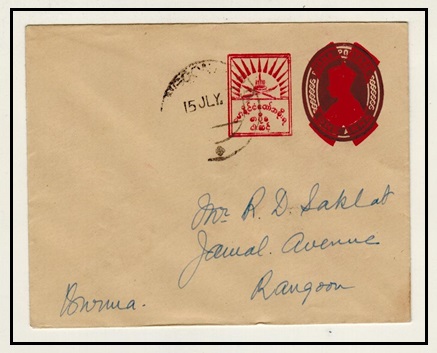 15 JLY.
Mr R. D. Saklat
Jamal. Avenue
Rangoon
Burma.